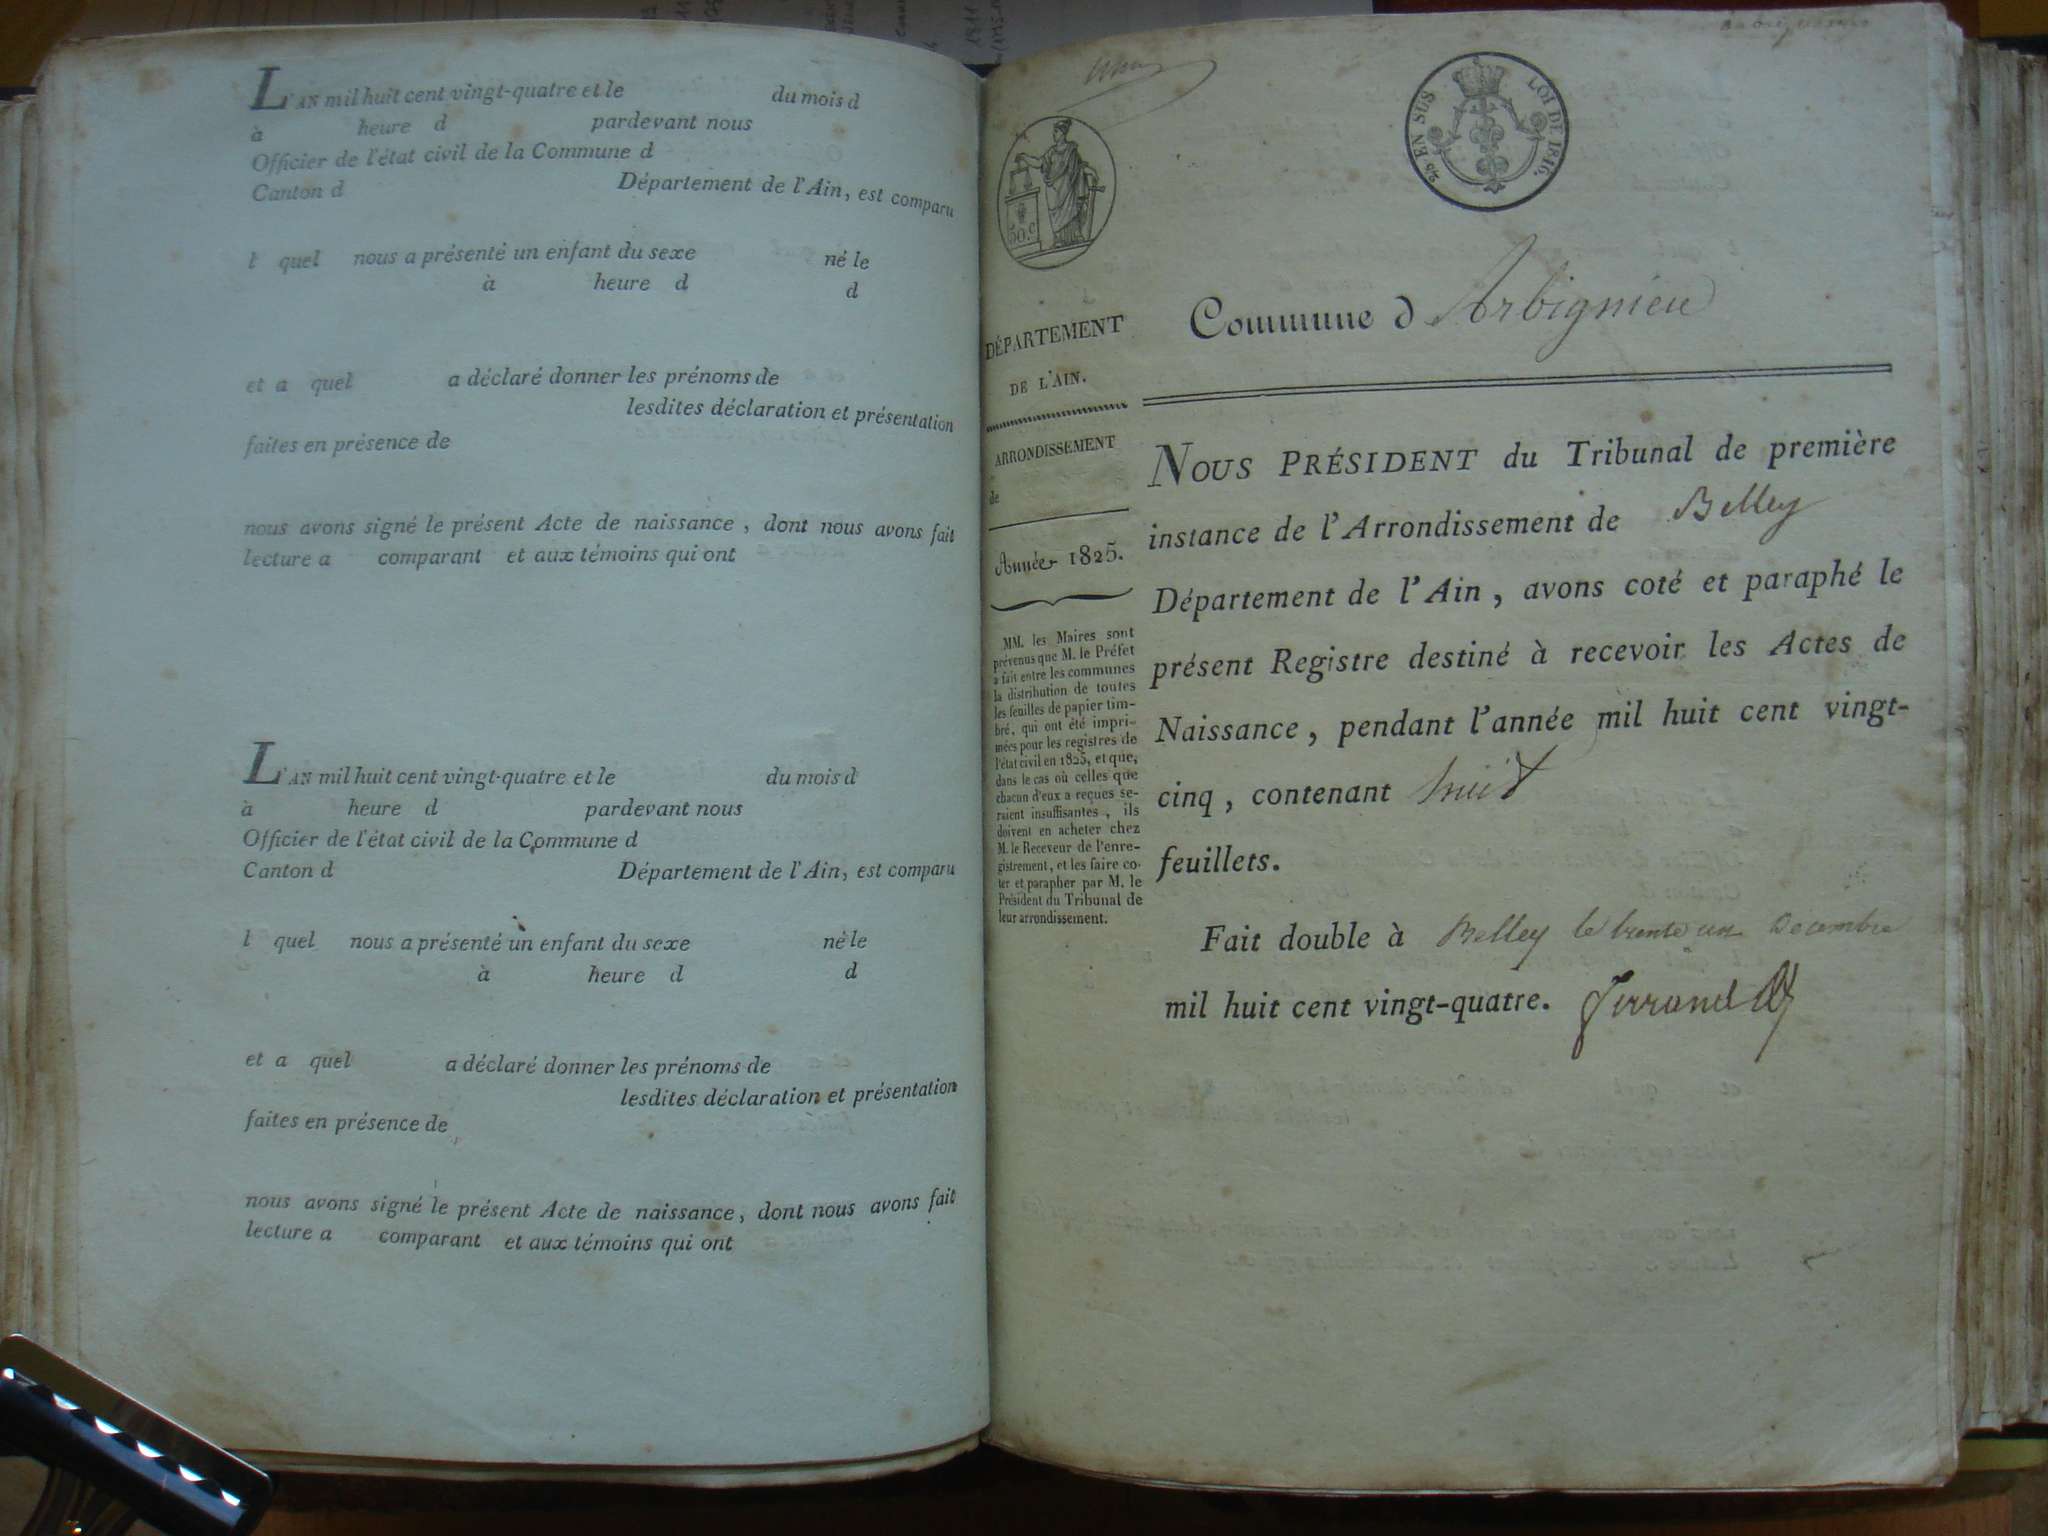 L'AN mil huit cent vingt-quatre et le du mois d
à heure d pardevant nous
Officier de l'état civil de la Commune d
Canton d Département de l'Ain, est comparu
l quel nous a présenté un enfant du sexe né le
à heure d d
et a quel a déclaré donner les prénoms de
lesdites déclaration et présentation
faites en présence de
nous avons signé le présent Acte de naissance, dont nous avons fait
lecture a comparant et aux témoins qui ont
L'AN mil huit cent vingt-quatre et le du mois d
à heure d pardevant nous
Officier de l'état civil de la Commune d
Canton d Département de l'Ain, est comparu
l quel nous a présenté un enfant du sexe né le
à heure d d
et a quel a déclaré donner les prénoms de
lesdites déclaration et présentation
faites en présence de
nous avons signé le présent Acte de naissance, dont nous avons fait
lecture a comparant et aux témoins qui ont
50.c
EN SUS LOI DE 1816.
DÉPARTEMENT
DE L'AIN.
ARRONDISSEMENT
de
Année 1825.
MM. les Maires sont
prévenus que M. le Préfet
a fait entre les communes
la distribution de toutes
les feuilles de papier tim-
bré, qui ont été impri-
mées pour les registres de
l'état civil en 1825, et que,
dans le cas où celles que
chacun d'eux a reçues se-
raient insuffisantes, ils
doivent en acheter chez
M. le Receveur de l'enre-
gistrement, et les faire co-
ter et parapher par M. le
Président du Tribunal de
leur arrondissement.
Commune d Arbignieu
NOUS PRÉSIDENT du Tribunal de première
instance de l'Arrondissement de Belley
Département de l'Ain, avons coté et paraphé le
présent Registre destiné à recevoir les Actes de
Naissance, pendant l'année mil huit cent vingt-
cinq, contenant huit
feuillets.
Fait double à Belley le trente un Decembre
mil huit cent vingt-quatre.